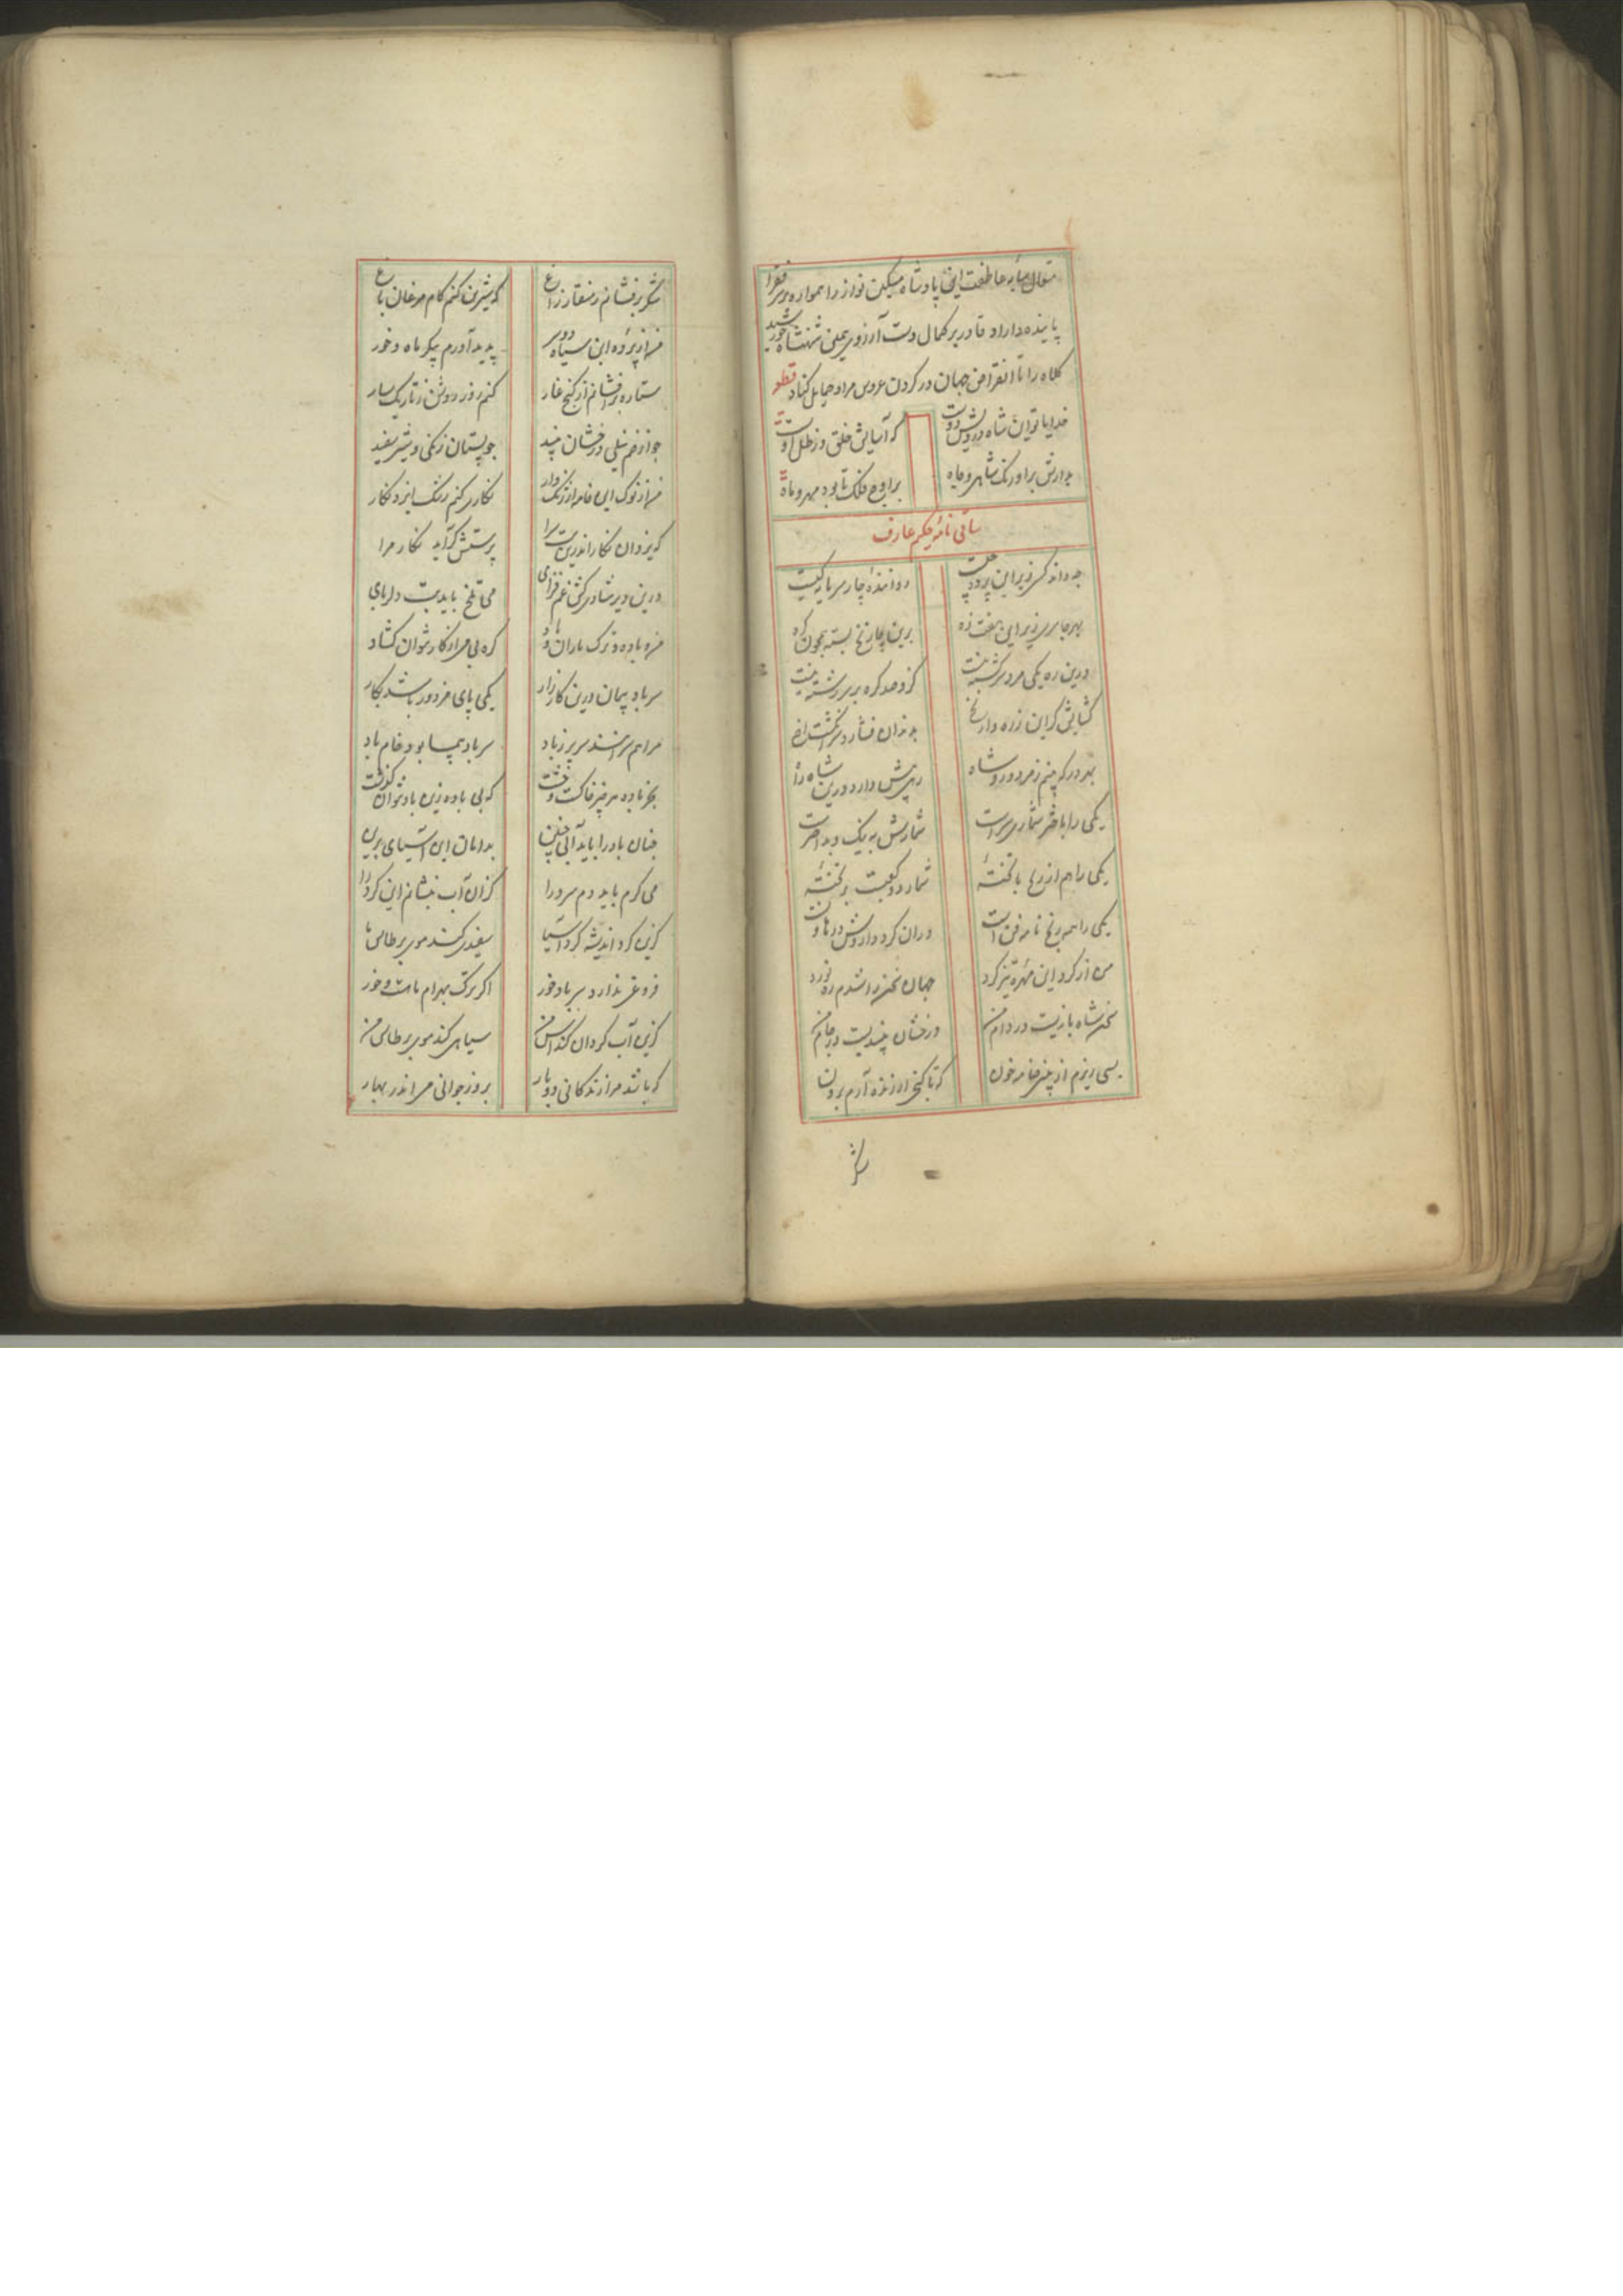 متوال سایه عاطفت این پادشاه مسکین نواز را همواره بر سر فقرا
پاینده داراد و قادر بر کمال دست آرزوی شهنشاه خورشید
کلاه را تا انقراض جهان در گردن عروس مراد حمایل کناد قطعه
خدایا تو این شاه درویش دوست که آسایش خلق در ظل اوست
بدارش بر اورنگ شاهی و جاه بر اوج فلک تا بود مهر و ماه
ساقی نامه حکیم عارف
چه داند کس زیر این پرده چیست رواننده چار سرمایه کیست
بهر جا سری زیر این هفت زه برین چار نخ بسته همچون گره
درین ره یکی مرد سرگشته نیست کزو صد گره بر سر رشته نیست
گشایش گر این زره وار نخ بدندان فشارد سرانگشت
بهر در که بینم ز مزدور و شاه رهش دارد درین شاه راه
یکی را با شماری سراست شمارش به نیک و بد اخترست
یکی را هم از رخ با تخته شمار دو کعبت بر تخته
یکی را همه رنج نامه فن است در آن کرد دارد
من از گرد این مهره تیز گرد جهان سخن را شدم ره نورد
سخن شاه بازیست در دام من درخشان نبیدیست در جام من
بسی ریزم از خامه خون که تا گنج ارزنده آرم برون
شکر برفشانم ز منقار زاغ که شیرین کنم کام مرغان باغ
من از پرده این سیاه پدید آورم پیکر ماه و خور
ستاره برافشانم از کنج غار کنم روز روشن ز تاریک سار
چو از خم نیلی درخشان نبید چو پستان زنگی و شیر سفید
من از نوک این خامه ارژنگ وار نگاری کنم رنگ ایزد نگار
که یزدان نگار اندرین پرستش گر آید نگار مرا
درین دیر شادی کش غم فزای می تلخ باید بت دلربای
من و باده و ترک یاران گره بی می از کار نتوان گشاد
سر باد پیمان درین کارزار یکی پای مزدور باشد بکار
مرا هم سراسیمه سر پر ز باد سر باد پیما بود خام باد
بجز باده هر چیز خاکست و خشت که بی باده زین باد نتوان گذشت
چنان باد را باید آبی چنین بدامان این آسیای برین
می گرم باید دم سرد را کزان آب بنشانم این گرد را
کزین گرد اندیشه گرد آسیا سفیدی کند موی بر طاس ما
فروغی ندارد سر باد خور اگر ترک بهرام باشد و خور
کزین آب گردان کند آس من سیاهی کند موی بر طاس من
که باشد مرا زندگانی دوبار بروز جوانی می اندر بهار